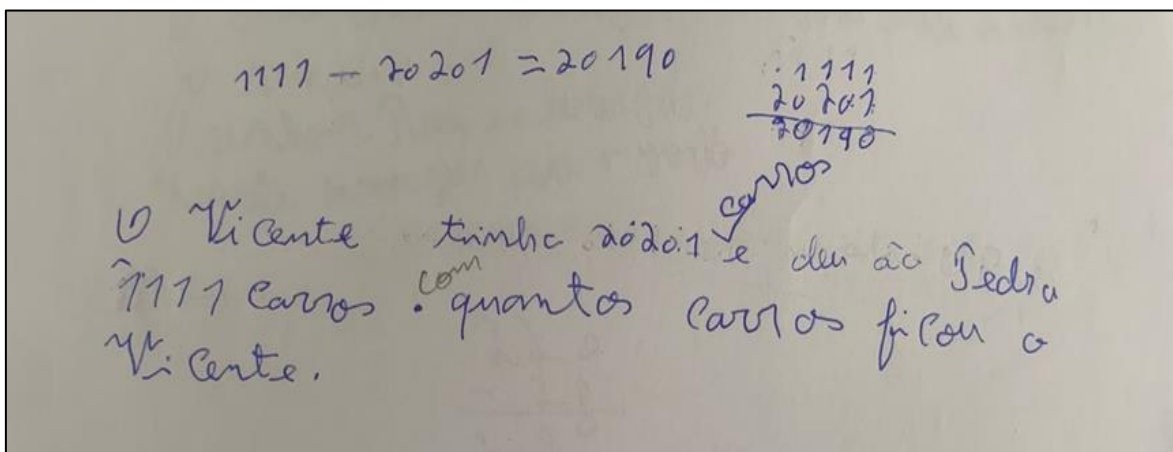 1111 - 20201 = 20190
1111
20201
20190
O Vicente tinha 20201 carros e deu ao Pedro
1111 carros. com quantos carros ficou o
Vicente.